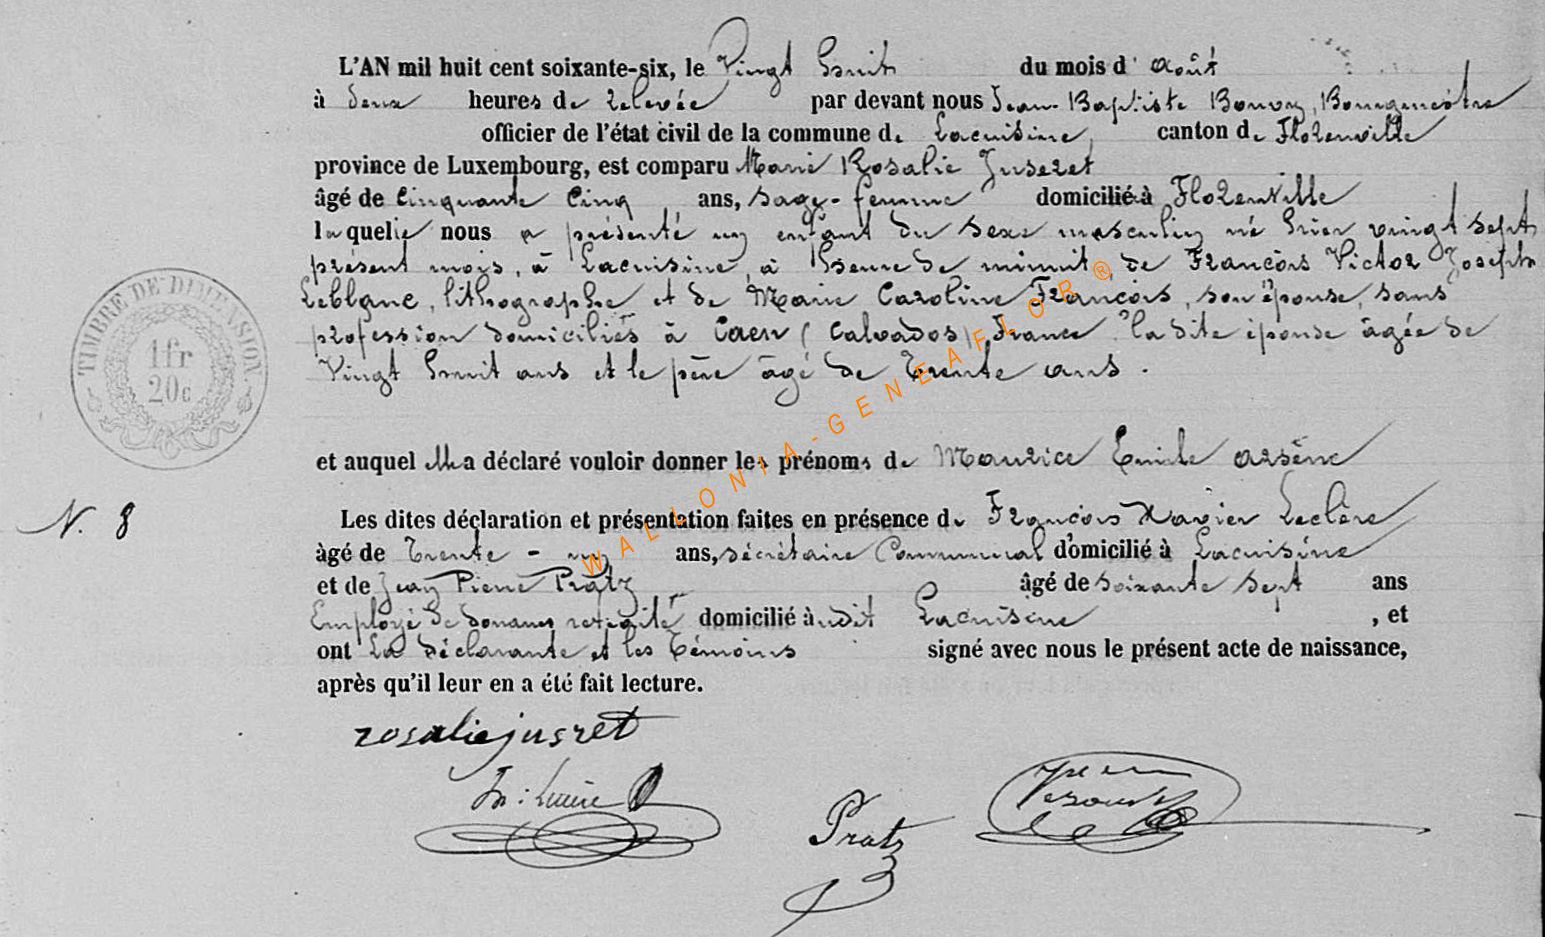 L'AN mil huit cent soixante-six, le Vingt huit du mois d' août
à deux heures de relevée par devant nous Jean-Baptiste Bonvoy, Bourgmestre
officier de l'état civil de la commune de Lacuisine, canton de Florenville
province de Luxembourg, est comparu Marie Rosalie Juseret
âgé de Cinquante Cinq ans, sage-femme domicilié à Florenville
laquelle nous a présenté un enfant du sexe masculin né hier vingt sept
présent mois, à Lacuisine, à heure de minuit, de François Victor Joseph
Leblanc, lithographe et de Marie Caroline François, son épouse, sans
profession domiciliés à Caen (Calvados) France la dite épouse âgée de
Vingt huit ans et le père âgé de trente ans.
et auquel elle a déclaré vouloir donner les prénoms de Maurice Emile arsène
N. 8
Les dites déclaration et présentation faites en présence de François Xavier Leclère
âgé de Trente - un ans, sécrétaire Communal domicilié à Lacuisine
et de Jean Pierre Pratz âgé de soixante sept ans
Employé de douanes retraité domicilié à udit Lacuisine , et
ont La déclarante et les témoins signé avec nous le présent acte de naissance,
après qu'il leur en a été fait lecture.
rosalie jusret
Pratz
TIMBRE DE DIMENSION
1 fr
20 c
WALLONIA-GENEAFLOR®